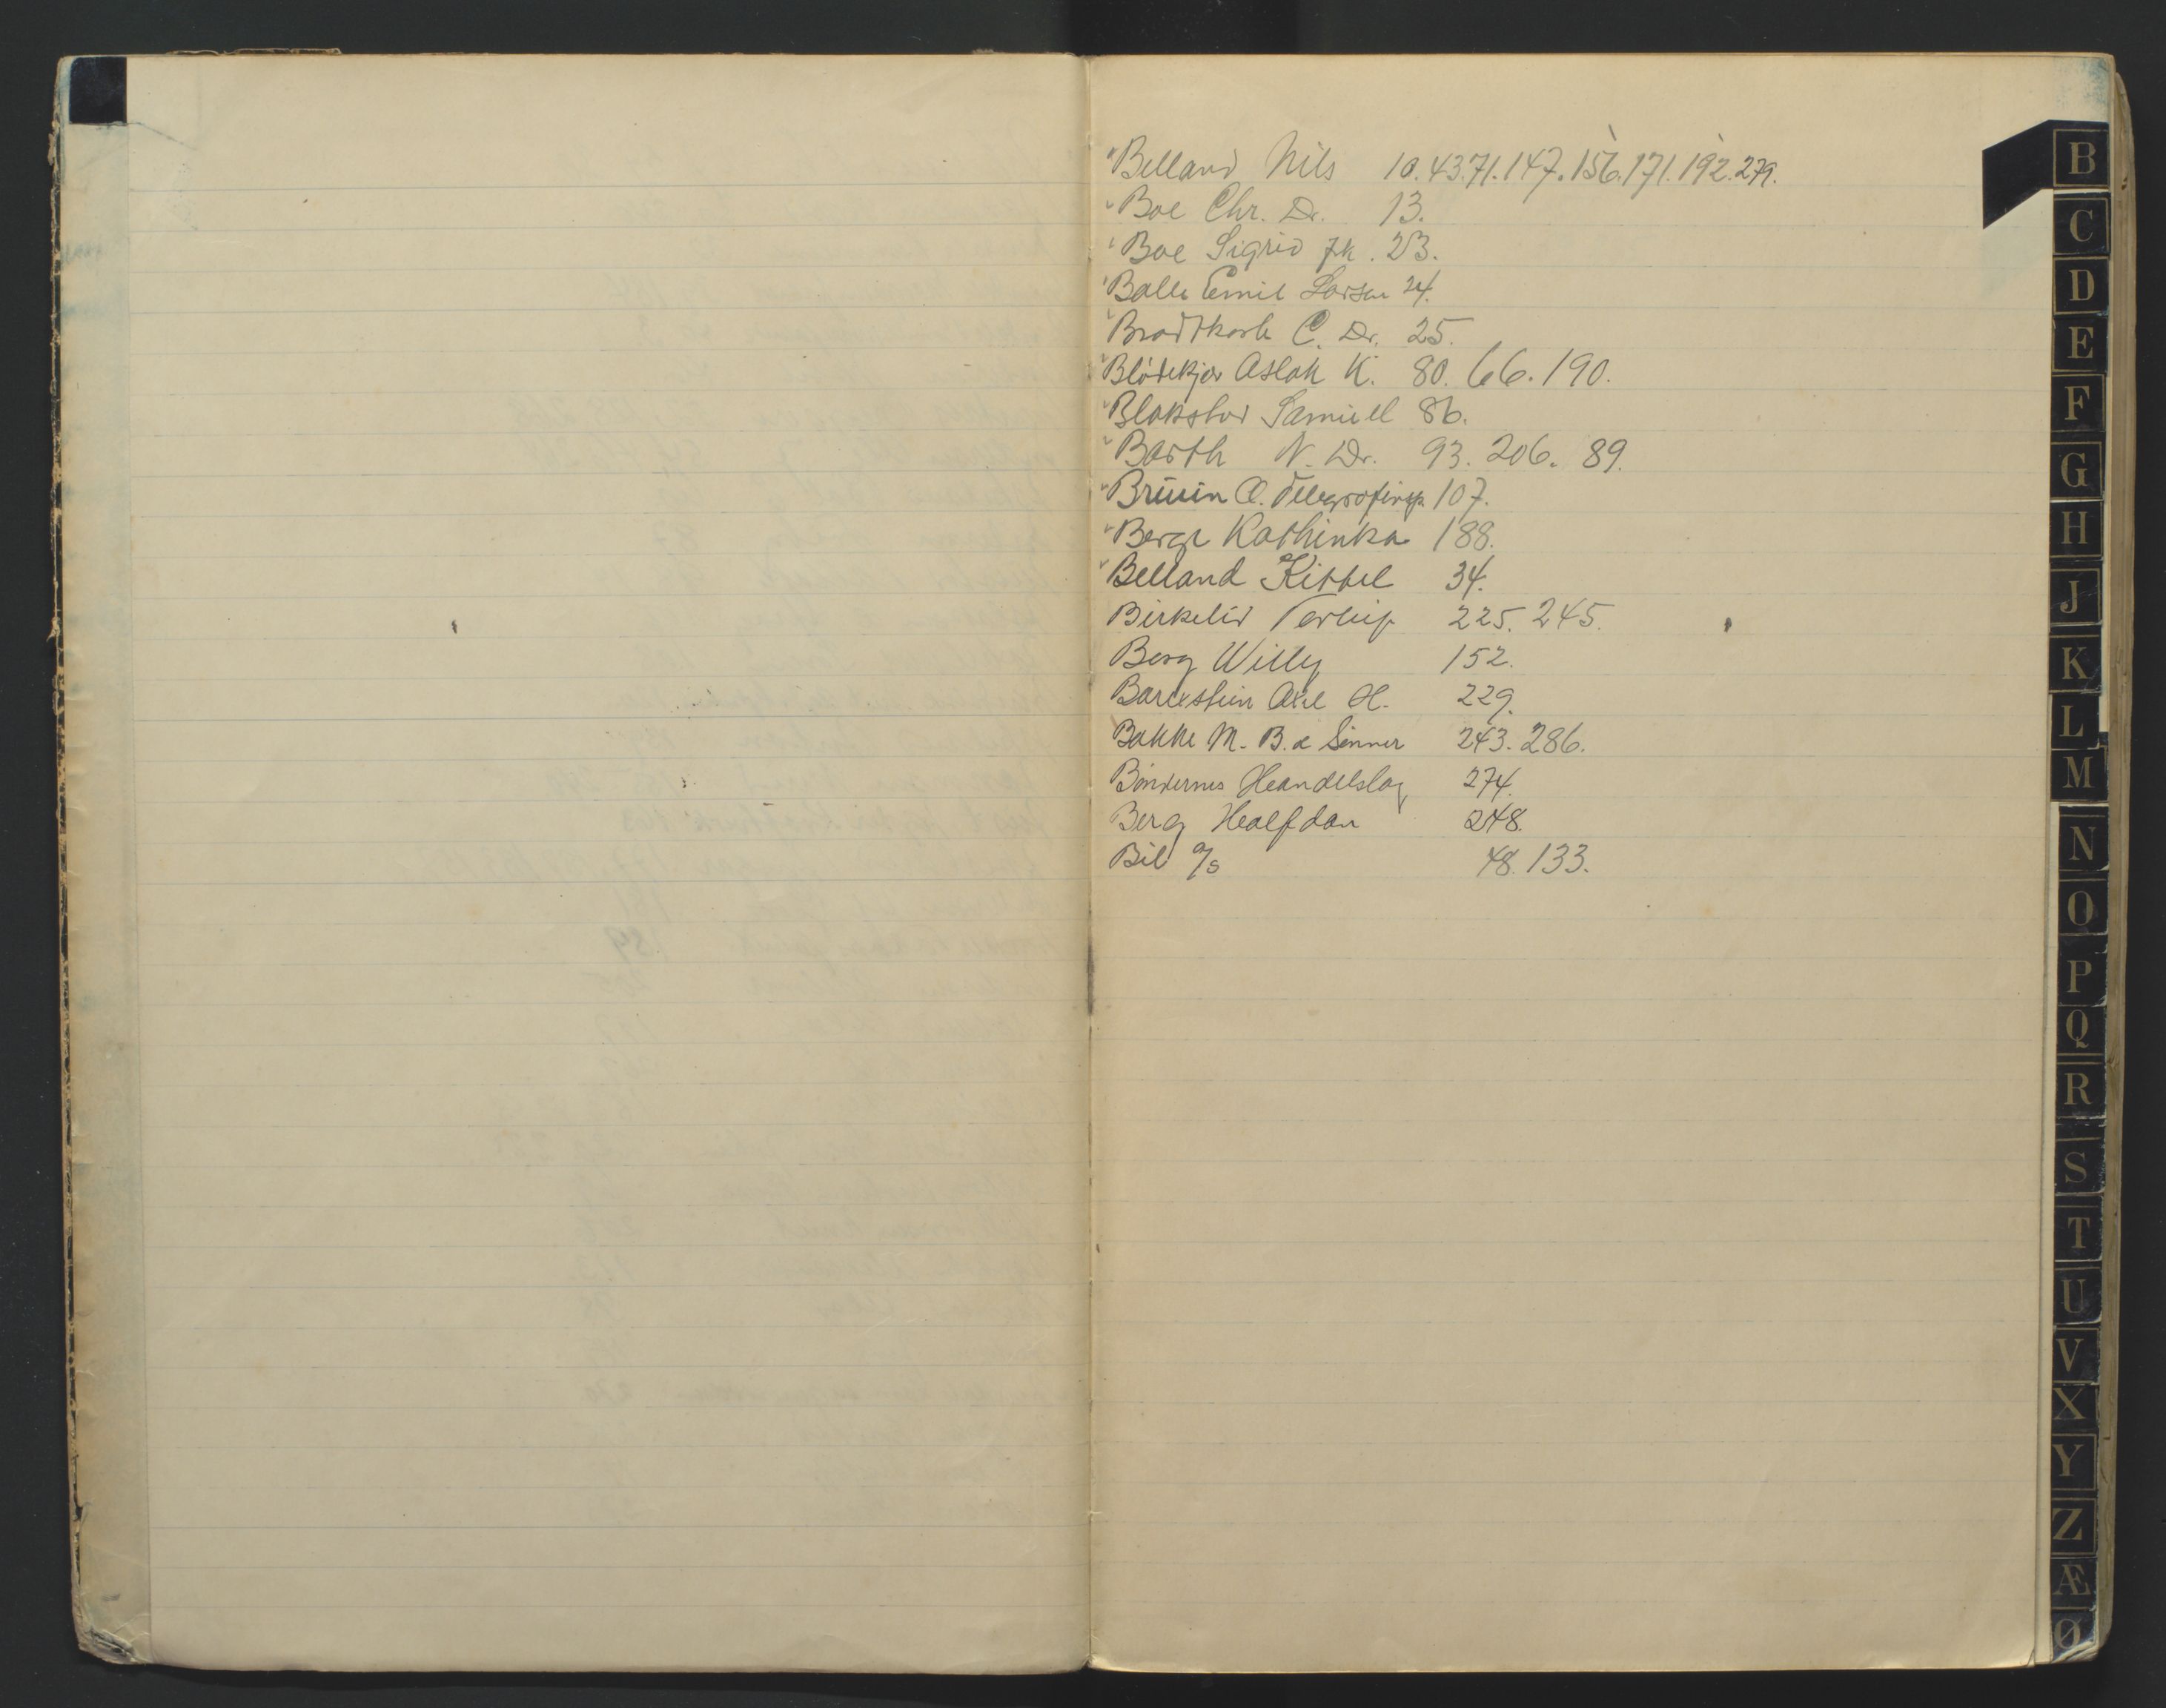 Belland Nils 10. 43. 71. 147. 156. 171. 192. 279.
Boe Chr. Dr. 13.
Boe Sigrid frk. 23.
Balle Emil Larsen 24.
Bradtkorb C. Dr. 25.
Blödekjær Aslak K. 80. 66. 190.
Blakstad Samuel 86.
Barth N. Dr. 93. 206. 89.
Bruun O. Telegrafinsp. 107.
Berge Kathinka 188.
Belland Kittel 34.
Birkelid Terleip 225. 245.
Berg Willy 152.
Axel H. 229.
Bakke M. B. & Sønner 243. 286.
Bøndernes Handelslag 274.
Berg Halfdan 248.
Bil A/S 48. 133.
B
C
D
E
F
G
H
J
K
L
M
N
O
P
Q
R
S
T
U
V
X
Y
Z
Æ
Ø